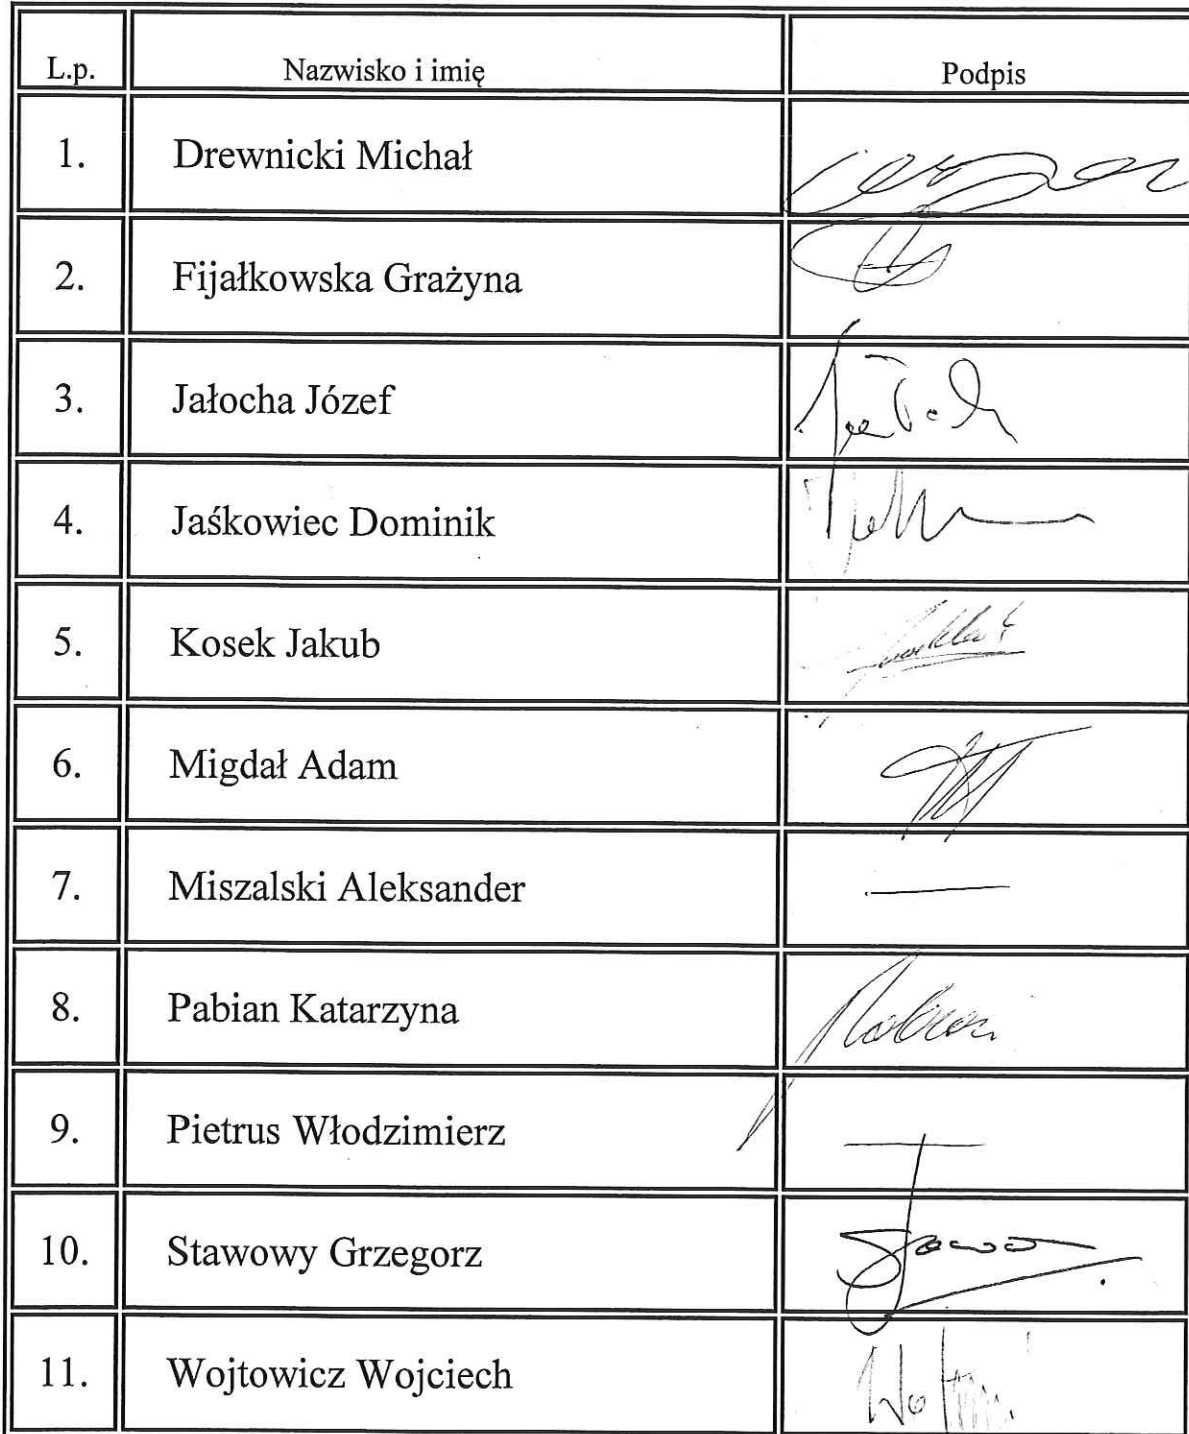 L.p. Nazwisko i imię Podpis
1. Drewnicki Michał
2. Fijałkowska Grażyna
3. Jałocha Józef
4. Jaśkowiec Dominik
5. Kosek Jakub
6. Migdał Adam
7. Miszalski Aleksander —
8. Pabian Katarzyna
9. Pietrus Włodzimierz —
10. Stawowy Grzegorz
11. Wojtowicz Wojciech